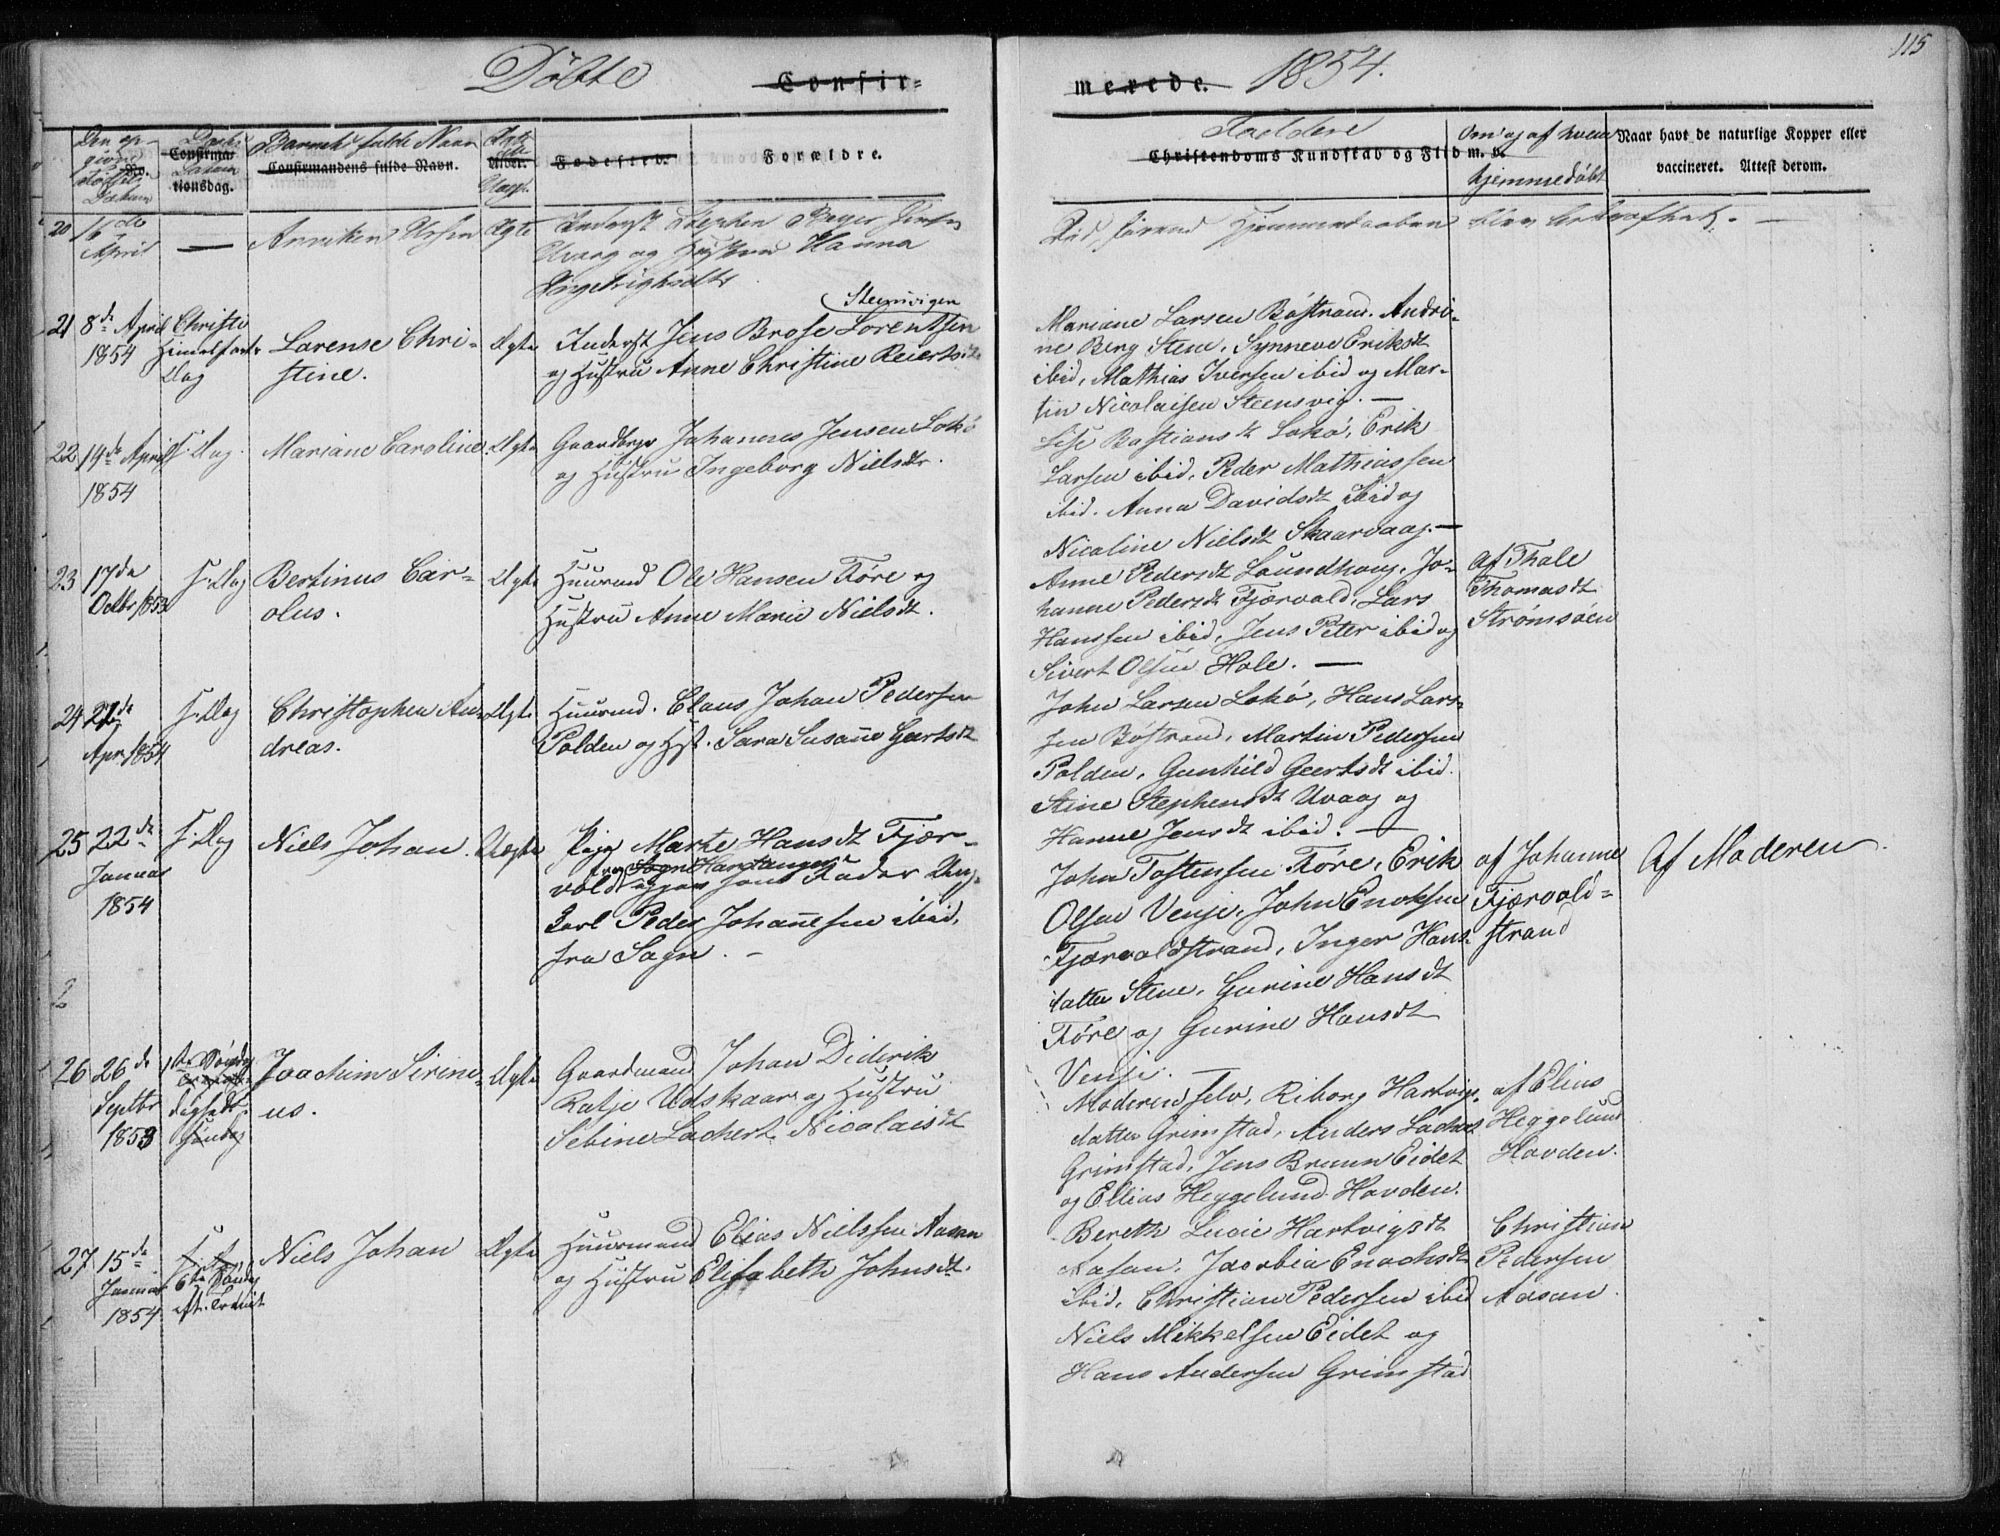 115
Döbte Confir=
merede. 1854.
Den op-
givne
No.
Födsels
Datum
Daabs
Confirma-
Datum
tionsdag.
Barnets fulde Navn
Confirmandens fulde Navn.
Ægte
Alder.
Uægt.
Fødested.
Forældre.
Faddere
Christendoms Kundskab og Flid m. v.
Om og af hvem
hjemmedöbt
Naar havt de naturlige Kopper eller
vaccineret. Attest derom.
20 16de
April
—
Anniken
Ægte
Inderst Stephen
Uvaag og Hustru Hanna
Hjemmedaaben blev bekræftet. —
21 8de April
1854
Christi
Himmelfarts
Dag
Lorense Chri-
stine.
Ægte
Steensvigen
Inderst Jens Brose Lorentsen
og Hustru Anne Christine Reiertsdt.
Mariane Larsen Böstrand. Andri-
ne Berg Stene, Synneve Eriksdt
ibid, Mathias Iversen ibid og Mar-
tin Nicolaisen Steensvig. —
22 19de April
1854
S. Dag.
Mariane Caroline.
Ægte
Gaardbrgr Johannes Jensen Lokö
og Hustru Ingeborg Nielsdr.
Lise Bastiansdt Lokö, Erik
Larsen ibid, Peder Mathiassen
ibid. Anna Davidsdt ibid og
Nicoline Nielsdt Skaarvaag. —
23 17de
Octbr 1853
S. Dag
Bertinus Car-
olus.
Ægte
Huusmd Ole Hansen Före og
Hustru Anne Marie Nielsdt.
Anne Pedersdt Laundhaug, Jo-
hanne Pedersdt Fjærvold, Lars
Hanssen ibid, Jens Peter ibid og
Sivert Olsen Hole. —
af Thale
Thomasdt
Strømsöen
24 21de
Apr 1854
S. Dag
Christopher An-
dreas.
Ægte
Huusmd. Claus Johan Pedersen
Polden og Hst. Sara Susanne Geertsdt
John Larsen Lokö, Hans Lars-
sen Böstrand, Martin Pedersen
Polden, Gunhild Geertsdt ibid.
Stine Stephensdt Uvaag og
Hanne Jensdt ibid. —
25 22de
Januar
1854
S. Dag
Niels Johan.
Uægte
Pige Marte Hansdt Fjær-
fra Sogn Hardanger
vold Fader Ung-
karl Peder Johannesen ibid,
fra Sogn. —
John Tostensen Före, Erik
Olsen Venje, John Enoksen
Fjærvoldstrand, Inger Hans-
datter Stene, Gurine Hansdt
Före og Gurine Hansdt
Venje. —
af Johanne
Fjærvold-
strand
Af Moderen
26 26de
Septbr
1853
1ste Söndag
Joachim Sirin-
us.
Ægte
Gaardmand Johan Diderik
Ratje Udskaar og Hustru
Sebine Lackert Nicolaisdt
Moderen selv, Riborg Hartvigs-
datter Grimstad, Anders Lackert
Grimstad, Jens Bruun Eidet
og Ellias Heggelund Hovden.
af Elias
Heggelund
Hovden.
27 15de
Januar
1854.
6te Söndag
eft. Trinit
Niels Johan
Ægte
Huusmand Elias Nielssen Aasan
og Hustru Elisabeth Johnsdt.
Bereth Lucie Hartvigsdt
Aasan, Jacobia Enochsdt
ibid, Christian Pedersen ibid
Niels Mikkelsen Eidet og
Hans Andersen Grimstad
Christian
Pedersen
Aasan.